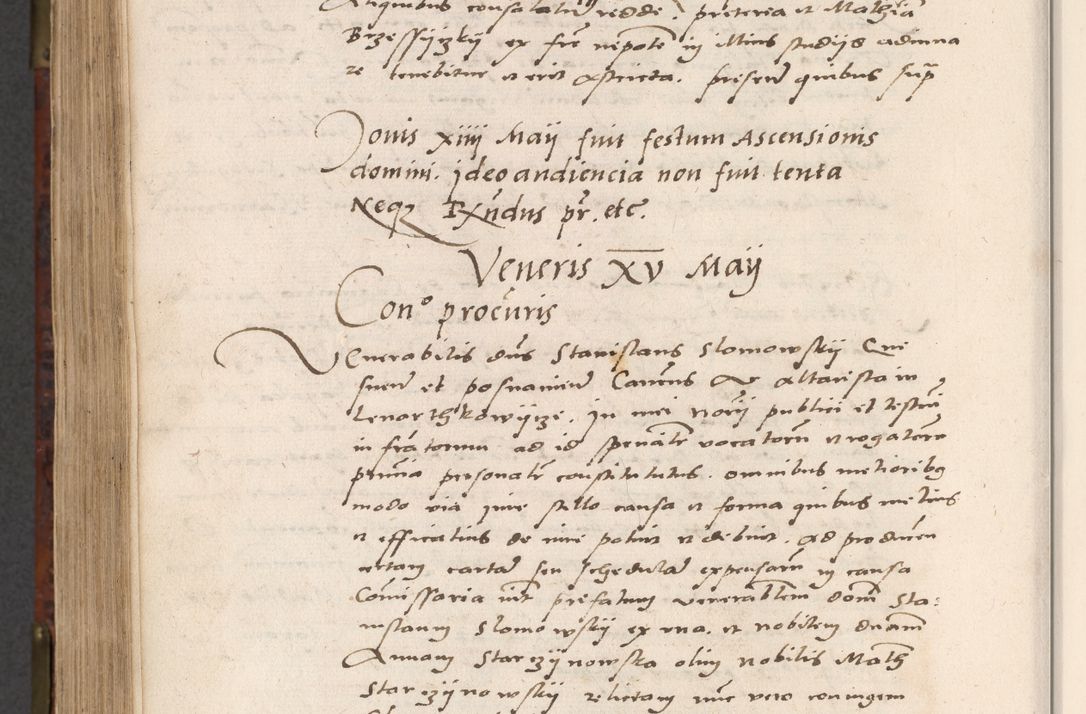 Aliquibus consolatur redde. preterea et Mathia
Brzessyizkij ex fre nepote in illius studijs adiuua
re tenebitur et erit astricta. presen quibus sup
Jouis xiiij Maij fuit festum Ascensionis
domini. ideo audiencia non fuit tenta
Neqz Rxndus pr. etc.
Veneris xv Maij
Cono procuris
Venerabilis dns Stanislaus Slomowskij Gne
snen et posnanien Cancus ac altarista in
Lenarthkowijcze. In mei norij publici et testiu
infratormu ad id spenatr vocatoru et rogatoru
pnia personatr constitutus. omnibus melioribz
modo via iure stillo causa et forma quibus melius
et efficatius de iure potuit et debuit. ad producen
certam cartas seu schedulas expensaru in causa
Comissaria int prefatum venerablem dom Sta:
nislaum Slomowskij ex vna. et nobilem dnam
Annam Starzijnowska olim nobilis Math
Starczijnowskij relictam nuc vero coniugem